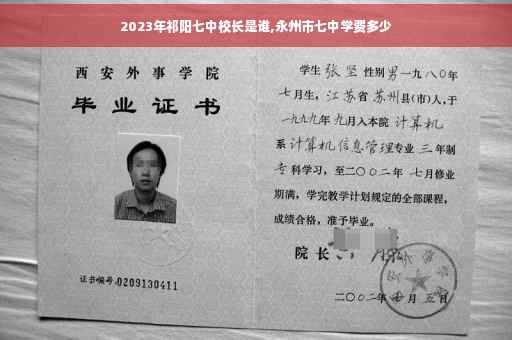 2023年祁阳七中校长是谁,永州市七中学费多少
西安外事学院
毕业证书
证书编号:0209130411
学生 张坚 性别 男 一九八〇年
七月生, 江苏省 苏州县(市)人,于
一九九九年 九月入本院 计算机
系 计算机信息管理专业 三 年制
专科学习,至二〇〇二年 七月修业
期满,学完教学计划规定的全部课程,
成绩合格,准予毕业。
院长
二〇〇二年 月 五日